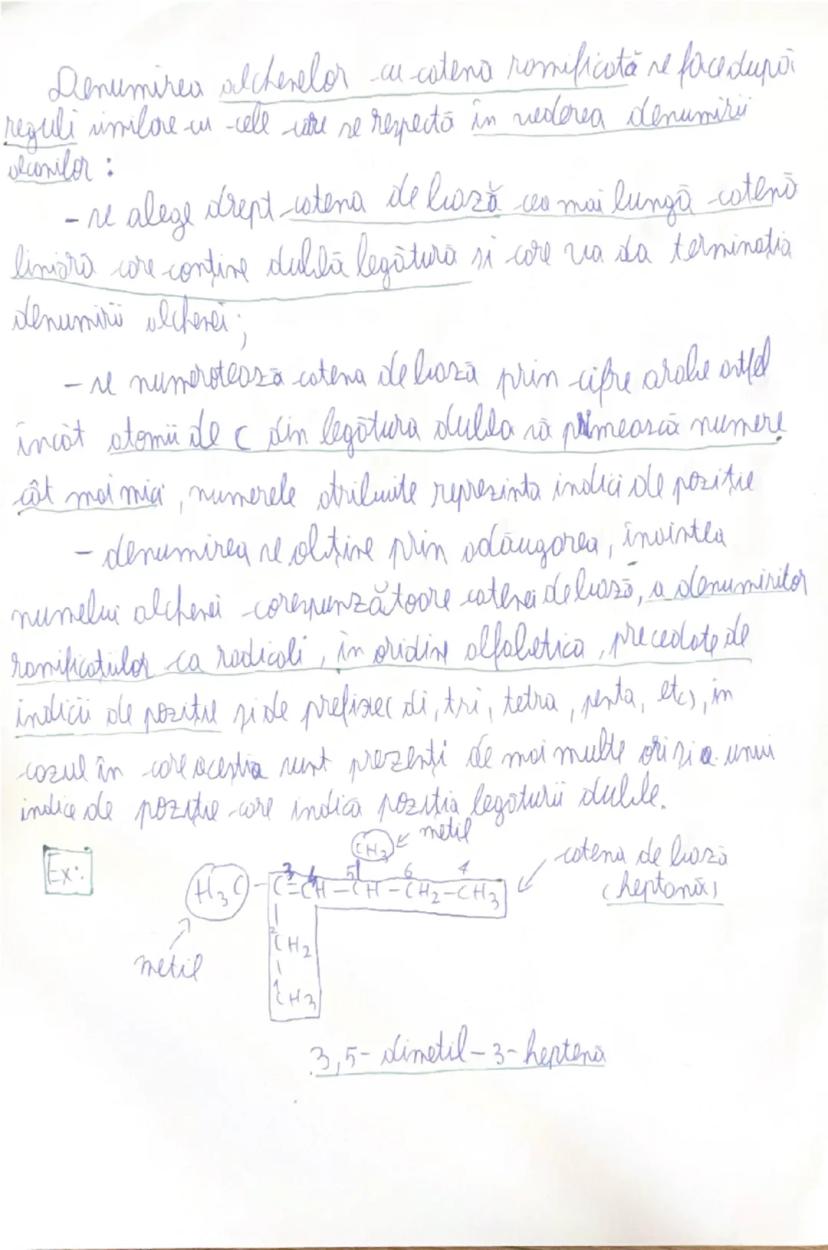 Denumirea alchenelor cu catena ramificată se face după
reguli similare cu cele care se respectă în vederea denumirii
alcanilor :
- se alege drept catena de bază cea mai lungă catenă
liniară care conține dublă legătură și care va da terminația
denumirii alchenei;
- se numerotează catena de bază prin cifre arabe astfel
încât atomii de C din legătura dubla să primească numere
cât mai mici, numerele atribuite reprezinta indici de poziție
- denumirea se obține prin adăugarea, înaintea
numelui alchenei corespunzătoare catenei de bază, a denumirilor
ramificațiilor ca radicali, în oridine alfabetica, precedate de
indicii de poziție și de prefixe( di, tri, tetra, penta, etc), in
cazul în care aceștia sunt prezenți de mai multe ori și a unui
indice de poziție care indica poziția legăturii duble.
CH3 ← metil
Ex:
catena de bază
(heptenă)
3 4 5 6 7
H3C - C = CH - CH - CH2 - CH3
metil
2 CH2
1 CH3
3,5- dimetil - 3 - heptenă